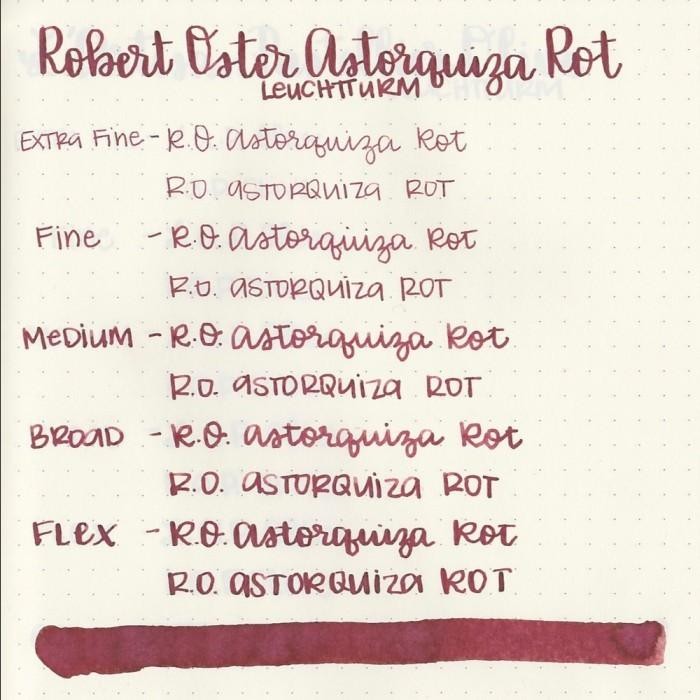 Robert Oster Astorquiza Rot
LEUCHTTURM
EXTRA Fine - R.O. astorquiza Rot
R.O. ASTORQUIZA ROT
Fine - R.O. astorquiza Rot
R.O. ASTORQUIZA ROT
MEDIUM - R.O. astorquiza Rot
R.O. ASTORQUIZA ROT
BROAD - R.O. astorquiza Rot
R.O. ASTORQUIZA ROT
FLEX - R.O. astorquiza Rot
R.O. ASTORQUIZA ROT